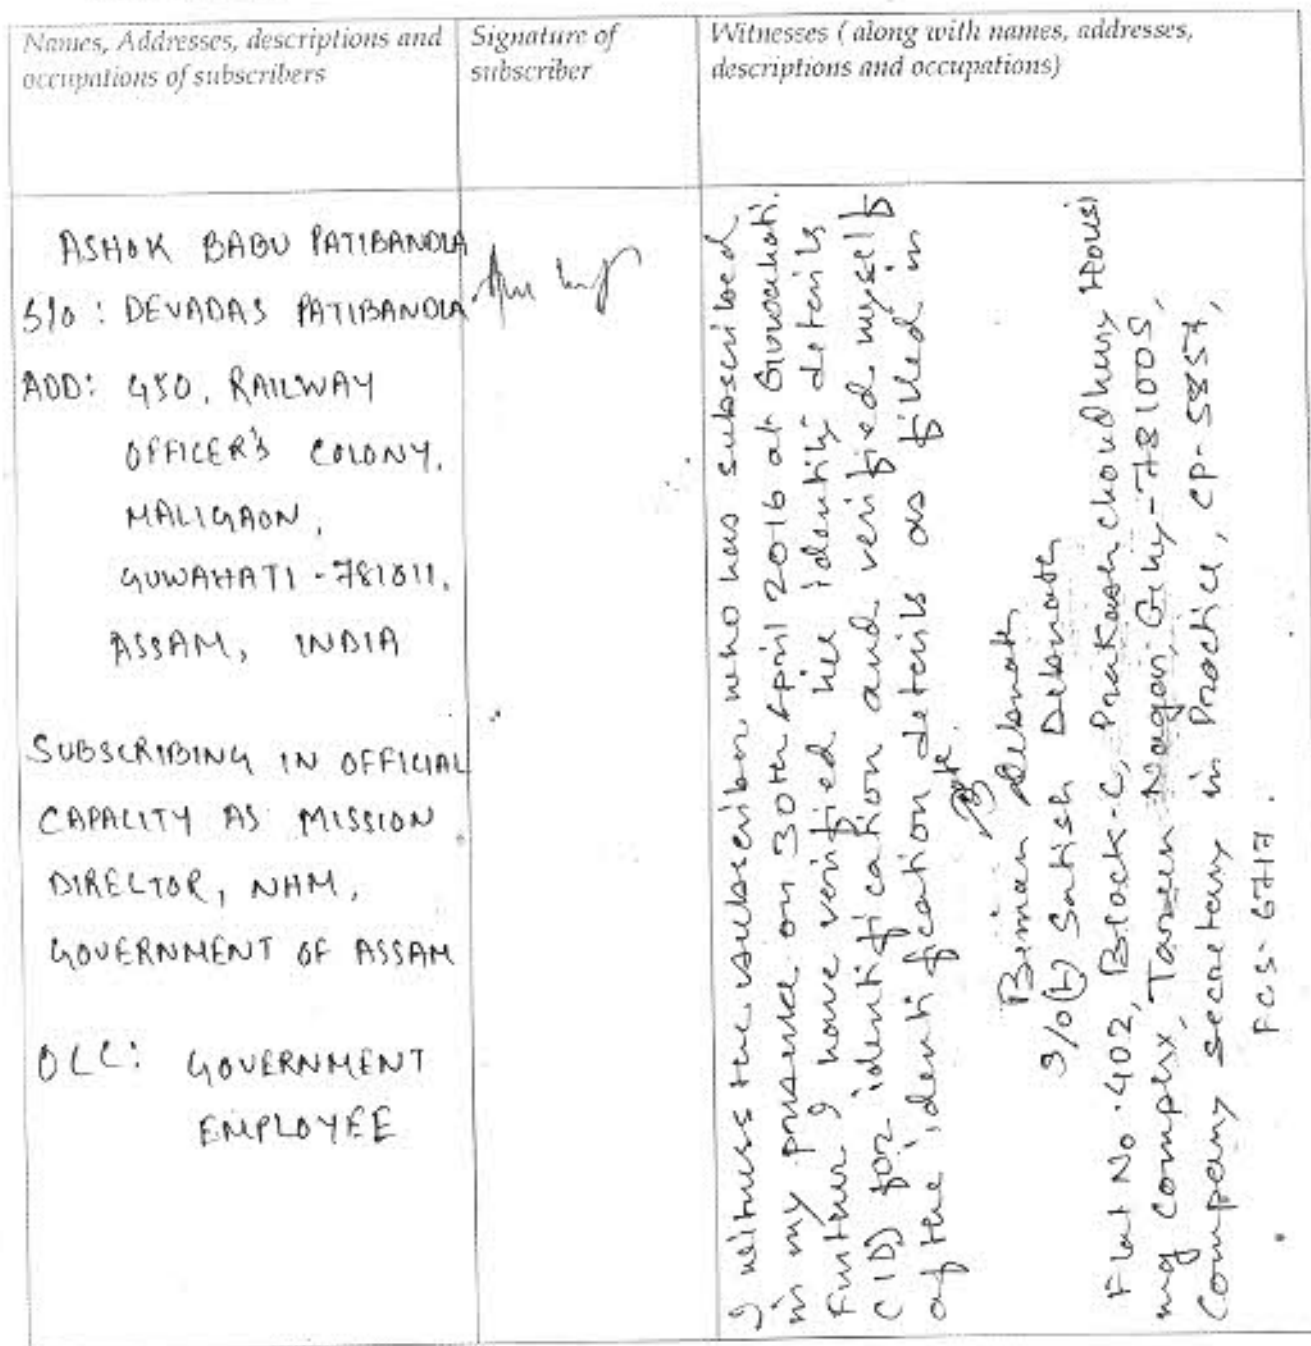 Names, Addresses, descriptions and
occupations of subscribers
Signature of
subscriber
Witnesses ( along with names, addresses,
descriptions and occupations)
ASHOK BABU PATIBANDLA
S/o : DEVADAS PATIBANDLA
ADD: 450, RAILWAY
OFFICER'S COLONY,
MALIGAON,
GUWAHATI - 781011,
ASSAM, INDIA
SUBSCRIBING IN OFFICIAL
CAPACITY AS MISSION
DIRECTOR, NHM,
GOVERNMENT OF ASSAM
OCC: GOVERNMENT
EMPLOYEE
I witness the subscriber who has subscribed
in my presence on 30th April 2016 at Guwahati.
Further I have verified his identity details
(ID) for identification and verified myself
of the identification details as filled in
Biman Debnath
S/o (L) Satish Debnath
Flat No. 402, Block-C, Prakash choudhury Housi
ng Complex, Nagar, Ghy-781005,
Company secretary in Practice, CP-5857,
FCS-6717.